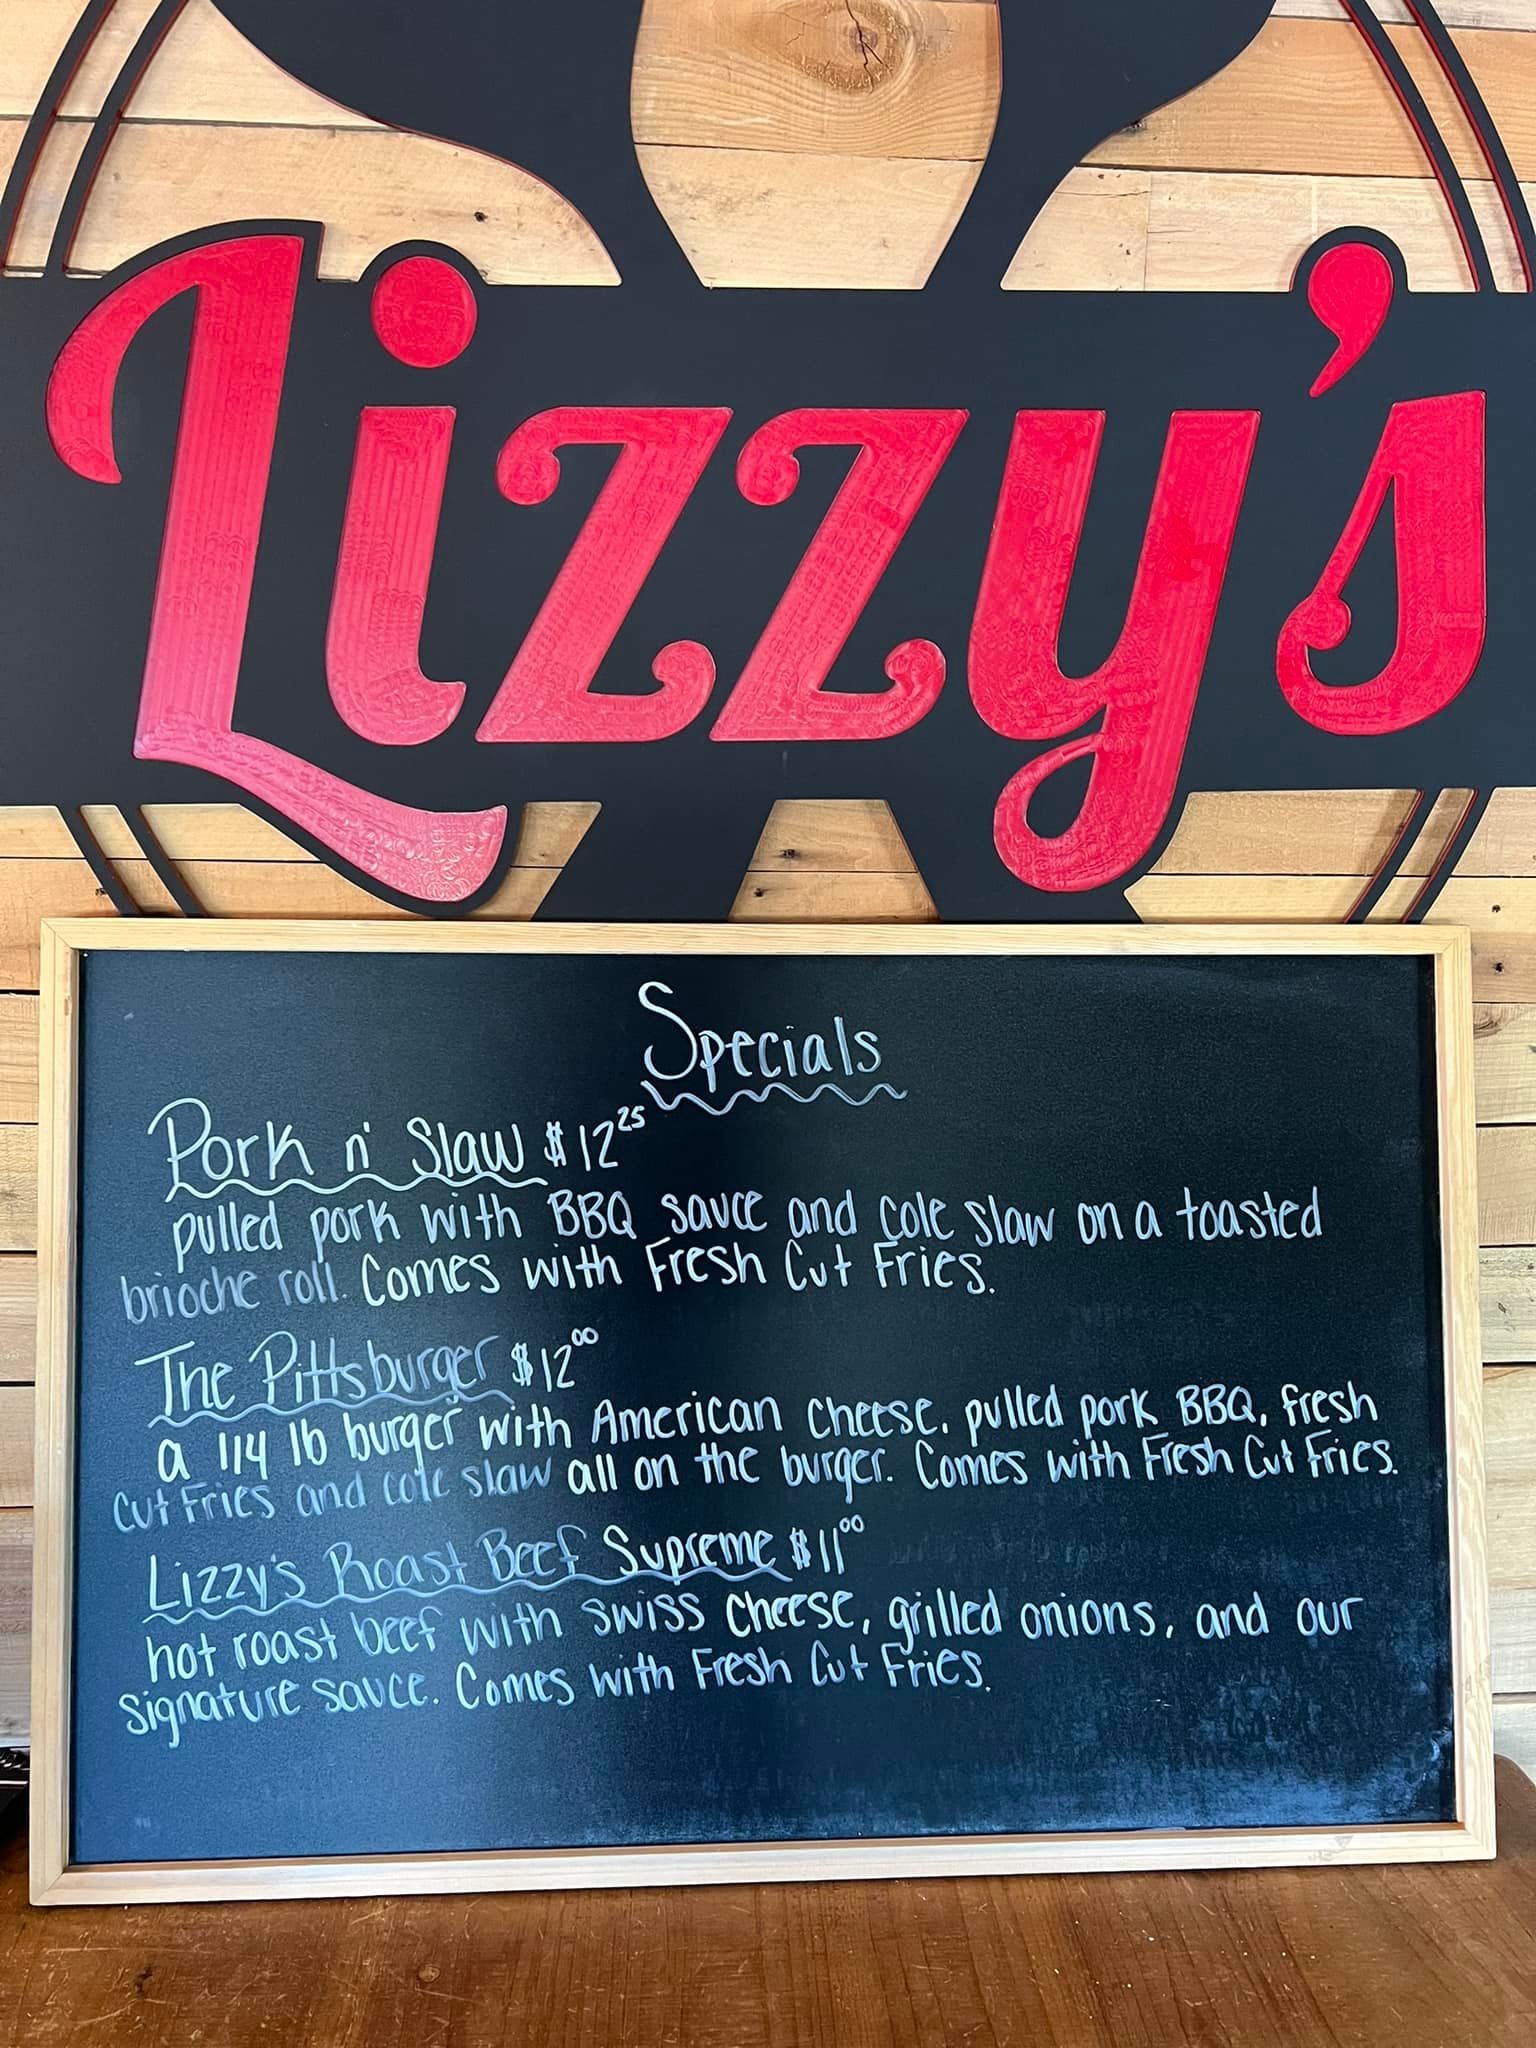 Lizzy's
Specials
Pork n' Slaw $12 25
pulled pork with BBQ sauce and cole slaw on a toasted
brioche roll. Comes with Fresh Cut Fries.
The Pittsburger $12 00
a 1/4 lb burger with American cheese, pulled pork BBQ, fresh
cut fries and cole slaw all on the burger. Comes with Fresh Cut Fries.
Lizzy's Roast Beef Supreme $11 00
hot roast beef with swiss cheese, grilled onions, and our
signature sauce. Comes with Fresh Cut Fries.